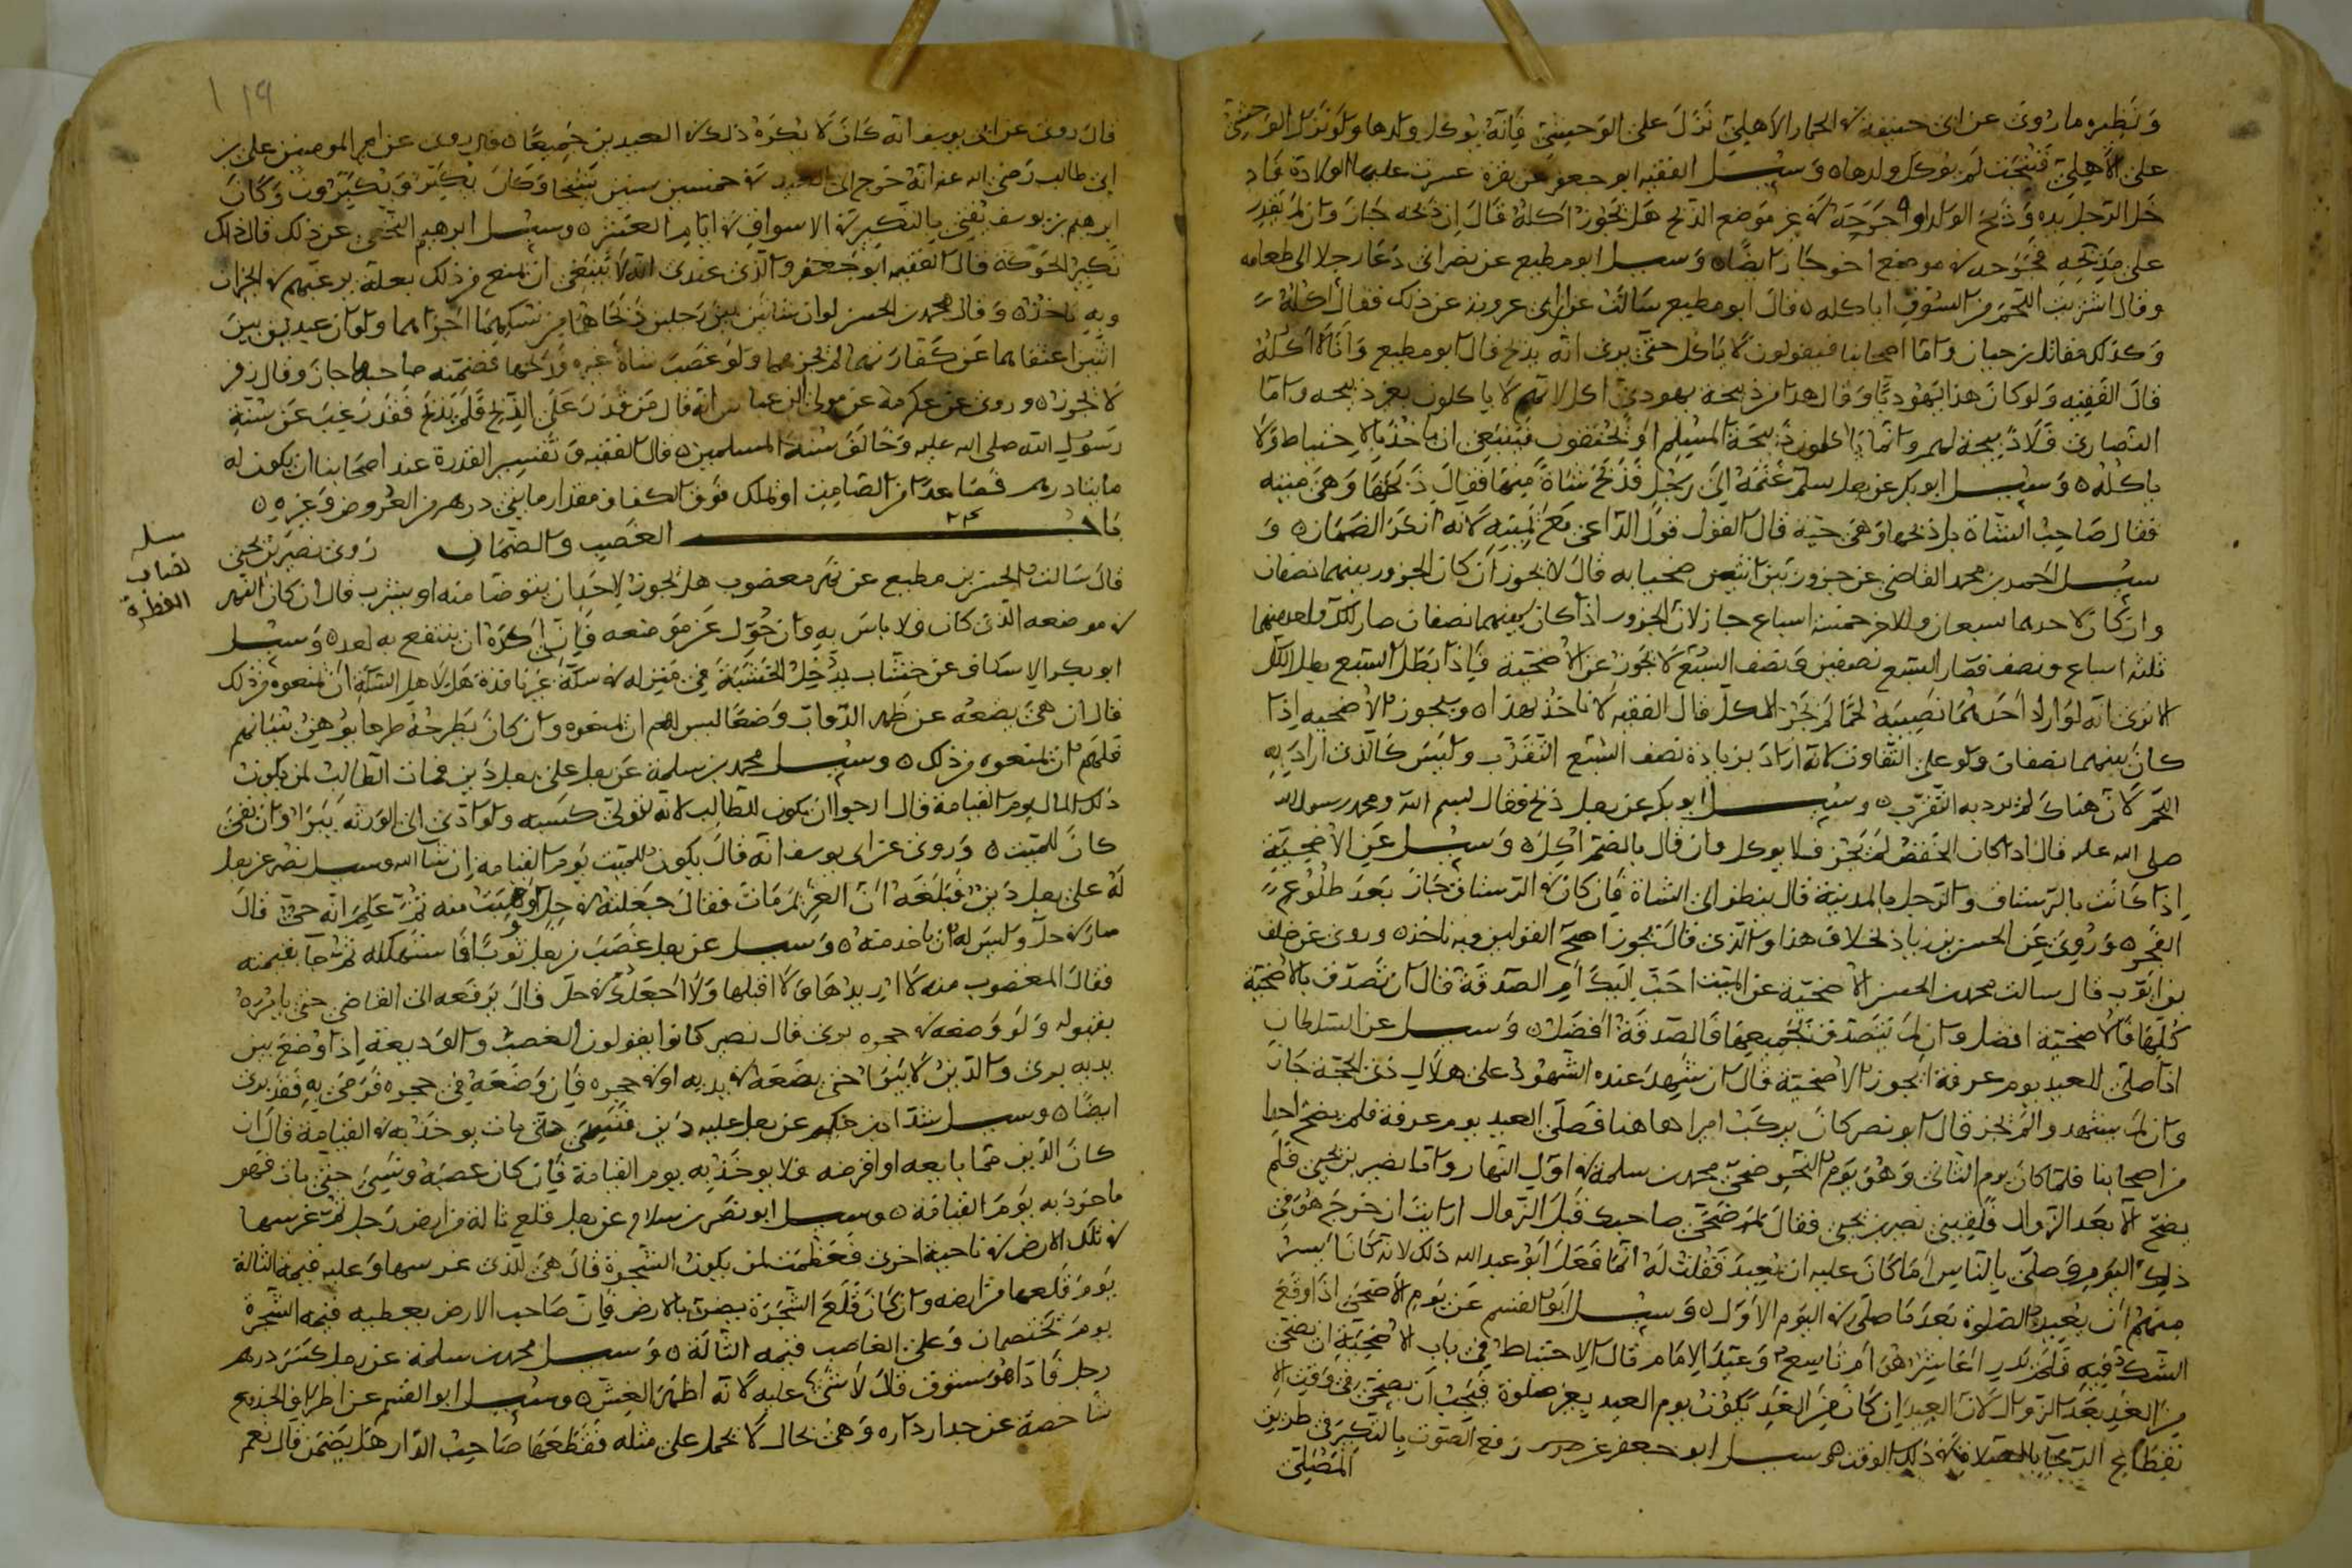 ونظيره ما روى عن ابى حنيفة فى الحمار الاهلىّ نَزَلَ على الوحشيّ فانه يوكل ولدها ولو نزل الوحشىّ
على الاهلىّ فنُتِجَت لم يوكل ولدها ه وسيل الفقيه ابو جعفر عن بقرة عسرت عليها الولادة فاد
خل الرجل يده وذبح الولد او جرحه فى غير موضع الذبح هل يجوز اكله قال ان ذبحه جاز وان لم يقدر
على مذبحه فجرحه فى موضع اخر جاز ايضا ه وسيل ابو مطيع عن نصرانى دعا رجلا الى طعامه
وقال اشتريت اللحم من السوق اياكله ه قال ابو مطيع سالت عن ابن ابى عروبة عن ذلك فقال اكله
وكذلك مقاتل بن حيان واما اصحابنا فيقولون لا ياكل حتى يرى انه يذبح قال ابو مطيع وانا لا اكله
قال الفقيه ولو كان هذا يهوديا وقال هذا من ذبيحة يهودى اكل لانهم لا ياكلون بغير ذبيحه واما
النصارى فلا ذبيحة لهم وانما ياكلون ذبيحة المسلم او يخنقون فينبغى ان ياخذ بالاحتياط ولا
ياكله ه وسيل ابو بكر عن رجل سلم غنمه الى رجل فذبح شاة منها فقال ذبحتها وهى ميته
فقال صاحب الشاة بل ذبحتها وهى حية قال القول قول الداعى مع يمينه لانه انكر الضمان ه و
سيل احمد بن محمد القاضى عن جزور بين اثنين ضحيا به قال لا يجوز ان كان الجزور بينهما نصفان
وان كان لاحدهما سبعان وللاخر خمسة اسباع جاز لان الجزور اذا كان بينهما نصفان صار لكل واحد منهما
ثلثه اسباع ونصف فصار السبع نصفين ونصف السبع لا يجوز عن الاضحية فاذا بطل السبع بطل الكل
الا ترى انه لو اراد احدهما نصيبه لحما لم يجز الكل قال الفقيه لا ناخذ بهذا ه ويجوز الاضحيه اذا
كان بينهما نصفان ولو على التفاوت لانه اراد بزيادة نصف السبع التقرب وليس كالذى اراد به
اللحم لان هناك لم يرد به التقرب ه وسيل ابو بكر عن رجل ذبح فقال بسم الله ومحمد رسول الله
صلى الله عليه قال اذا كان الخفض لم يجز فلا يوكل وان قال بالضم اكل ه وسيل عن الاضحية
اذا كانت بالرستاق والرجل بالمدينة قال ينظر الى الشاة فان كان فى الرستاق جاز بعد طلوع
الفجر ه وروى عن الحسن بن زياد خلاف هذا والذى قال يجوز اصح القولين وبه ناخذ ه وروى عن خلف
بن ايوب قال سالت محمد بن الحسن الاضحية عن الميت احب اليك ام الصدقة قال ان تصدق بالاضحية
كلها فالاضحية افضل وان لم يتصدق بجميعها فالصدقة افضل ه وسيل عن السلطان
اذا صلى للعيد يوم عرفة ايجوز الاضحية قال ان شهد عنده الشهود على هلال ذى الحجة جاز
وان لم يشهدوا لم يجز قال ابو نصر كان يركب امرا هاهنا فصلى العيد يوم عرفة فلم يضح احدا
من اصحابنا فلما كان يوم الثانى وهو يوم النحر ضحى محمد بن سلمة فى اول النهار واما نصير بن يحيى فلم
يضح الا بعد الزوال فلقينى نصير بن يحيى فقال لم ضحى صاحبك قبل الزوال ارايت ان خرج هو فى
ذلك اليوم وصلى بالناس اما كان عليه ان يعيد فقلت له انما فعل ابو عبد الله ذلك لانه كان ايسر
منهم ان يعيدوا الصلوة بعد ما صلى فى اليوم الاول ه وسيل ابو القسم عن يوم الاضحى اذا وقع
الشك فيه فلم يدر اعاشر هو ام تاسع وعيد الامام قال الاحتياط فى باب الاضحية ان يضحى
من الغد بعد الزوال لان العيد ان كان من الغد يكون يوم العيد بغير صلوة فيجب ان يضحى فى وقت الا
نقطاع الرجا بالصلاة فى ذلك الوقت ه وسيل ابو جعفر عن رفع الصوت بالتكبير فى طريق
المصلى
قال روى عن ابى يوسف انه كان لا يكره ذلك فى العيدين جميعا ه قال روى عن امير المومنين على بن
ابى طالب رضى الله عنه انه خرج الى العيد فى خمسين ستين شيخا وكان يكبر ويكبرون وكان
ابرهيم بن يوسف يفتى بالتكبير فى الاسواق فى ايام العشر ه وسيل ابرهيم النخعى عن ذلك قال ذاك
تكبير الحوكة قال الفقيه ابو جعفر والذى عندى انه لا ينبغى ان تمنع من ذلك بعلة يرغبهم فى الخيرات
وبه ناخذ ه وقال محمد بن الحسن لو ان شاتين بين رجلين ذبحاهما من نسكهما اجزاهما ولو ان عبدين بين
اثنين اعتقاهما عن كفارتهما لم يجز هما ولو غصب شاة غيره وذبحها فضمنه صاحبها جاز وقال زفر
لا يجوز ه وروى عن عكرمة عن مولى ابن عباس انه قال من قدر على الذبح فلم يذبح فقد رغب عن سنة
رسول الله صلى الله عليه وخالف سنة المسلمين ه قال الفقيه وتفسير القدرة عند اصحابنا ان يكون له
مايتا درهم فصاعدا من الصامت او تملك فوق الكفاف مقدار مايتى درهم من العروض وغيره ه
باب الغصب والضمان روى نصير بن يحيى
٢٣
قال سالت الحسن بن مطيع عن نهر مغصوب هل يجوز لاحد ان يتوضا منه او يشرب قال ان كان النهر
فى موضعه الذى كان فلا باس به وان حول عن موضعه فانى اكره ان ينتفع به احد ه وسيل
ابو بكر الاسكاف عن خشاب يدخل الخشبة فى منزله فى سكة غير نافذة هل لاهل السكة ان يمنعوه من ذلك
قال ان هى يضعه عن ظهر الدواب وضعا ليس لهم ان يمنعوه وان كان يطرحه طرحا يوهن بنيانهم
فلهم ان يمنعوه من ذلك ه وسيل محمد بن سلمة عن رجل على رجل دين فمات الطالب لمن يكون
ذلك المال يوم القيامة قال ارجوا ان يكون للطالب لانه تولى كسبه ولو ادى الى الورثه يبرا وان بقى
كان للميت ه وروى عن ابى يوسف انه قال يكون للميت يوم القيامة ان شا الله وسيل نصر عن رجل
له على رجل دين فبلغه ان الغريم مات فقال جعلته فى حل او وهبت منه ثم علم انه حى قال
صار فى حل وليس له ان ياخذ منه ه وسيل عن رجل غصب من رجل ثوبا فاستهلكه ثم جا بقيمته
فقال المغصوب منه لا اريدها ولا اقبلها ولا اجعلك فى حل قال يرفعه الى القاضى حتى يامره
بقبوله ولو وضعه فى حجره برى قال نصير كانوا يقولون الغصب والوديعة اذا وضع بين
يديه برى والدين لا يبرا حتى يضعه فى يديه او فى حجره فان وضعه فى حجره فرمى به فقد برى
ايضا ه وسيل شداد بن حكيم عن رجل عليه دين فنسى حتى مات يوخذ به فى القيامة قال ان
كان الدين مما بايعه او اقرضه فلا يوخذ به يوم القيامة فان كان غصبه ونسى حتى مات فهو
ماخوذ به يوم القيامة ه وسيل ابو نصر بن سلام عن رجل قلع تالة من ارض رجل ثم غرسها
فى تلك الارض فى ناحية اخرى فعظمت لمن يكون الشجرة قال هى للذى غرسها وعليه قيمة التالة
يوم قلعها من ارضه وان كان قلع الشجرة يضر بالارض فان صاحب الارض يعطيه قيمة الشجرة
يوم تختصمان وعلى الغاصب قيمة التالة ه وسيل محمد بن سلمة عن رجل كسر درهم
رجل فاذا هو ستوق قال لا شى عليه لانه اظهر الغش ه وسيل ابو القسم عن اطراف الجذوع
شاخصة عن جدار داره وهى بحال لا يحمل على مثله فقطعها صاحب الدار هل يضمن قال نعم